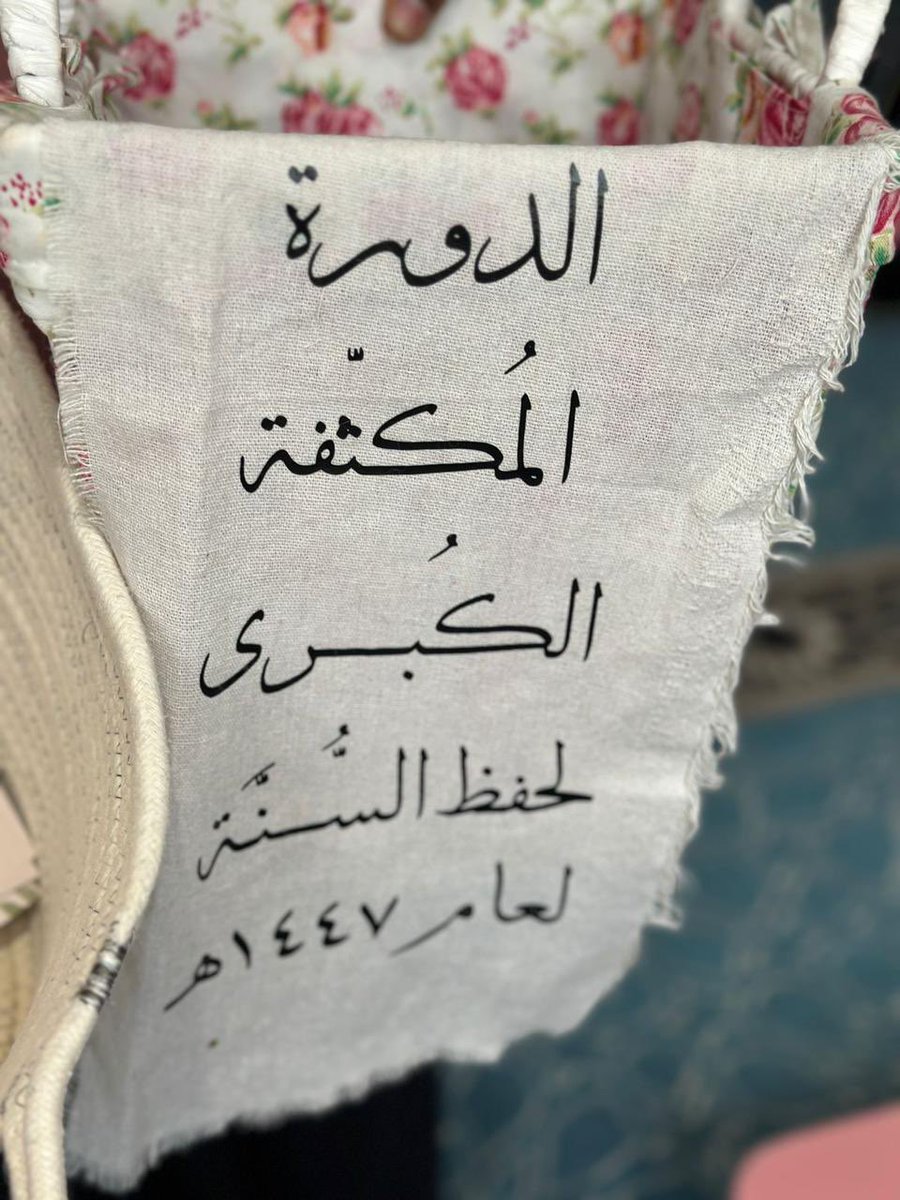 الدورة
المُكثّفة
الكُبرى
لحفظ السُّنَّة
لعام ١٤٤٧هـ